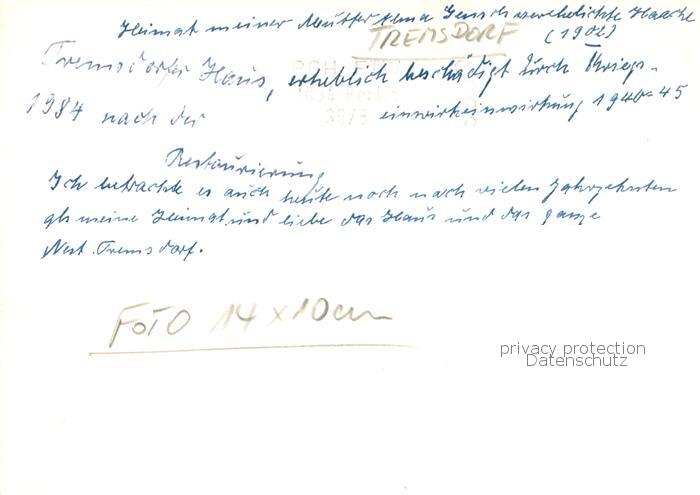 Heimat meiner Mutter Elma Gensch verehelichte Haacke
TREMSDORF (1902)
Tremsdorfer Haus, erheblich beschädigt durch Kriegs-
einwirkeinwirkung 1940-45
1984 nach der
Restaurierung
Ich betrachte es auch heute noch nach vielen Jahrzehnten
als meine Heimat und liebe das Haus und das ganze
Nest Tremsdorf.
FOTO 14 x 10 cm
privacy protection
Datenschutz